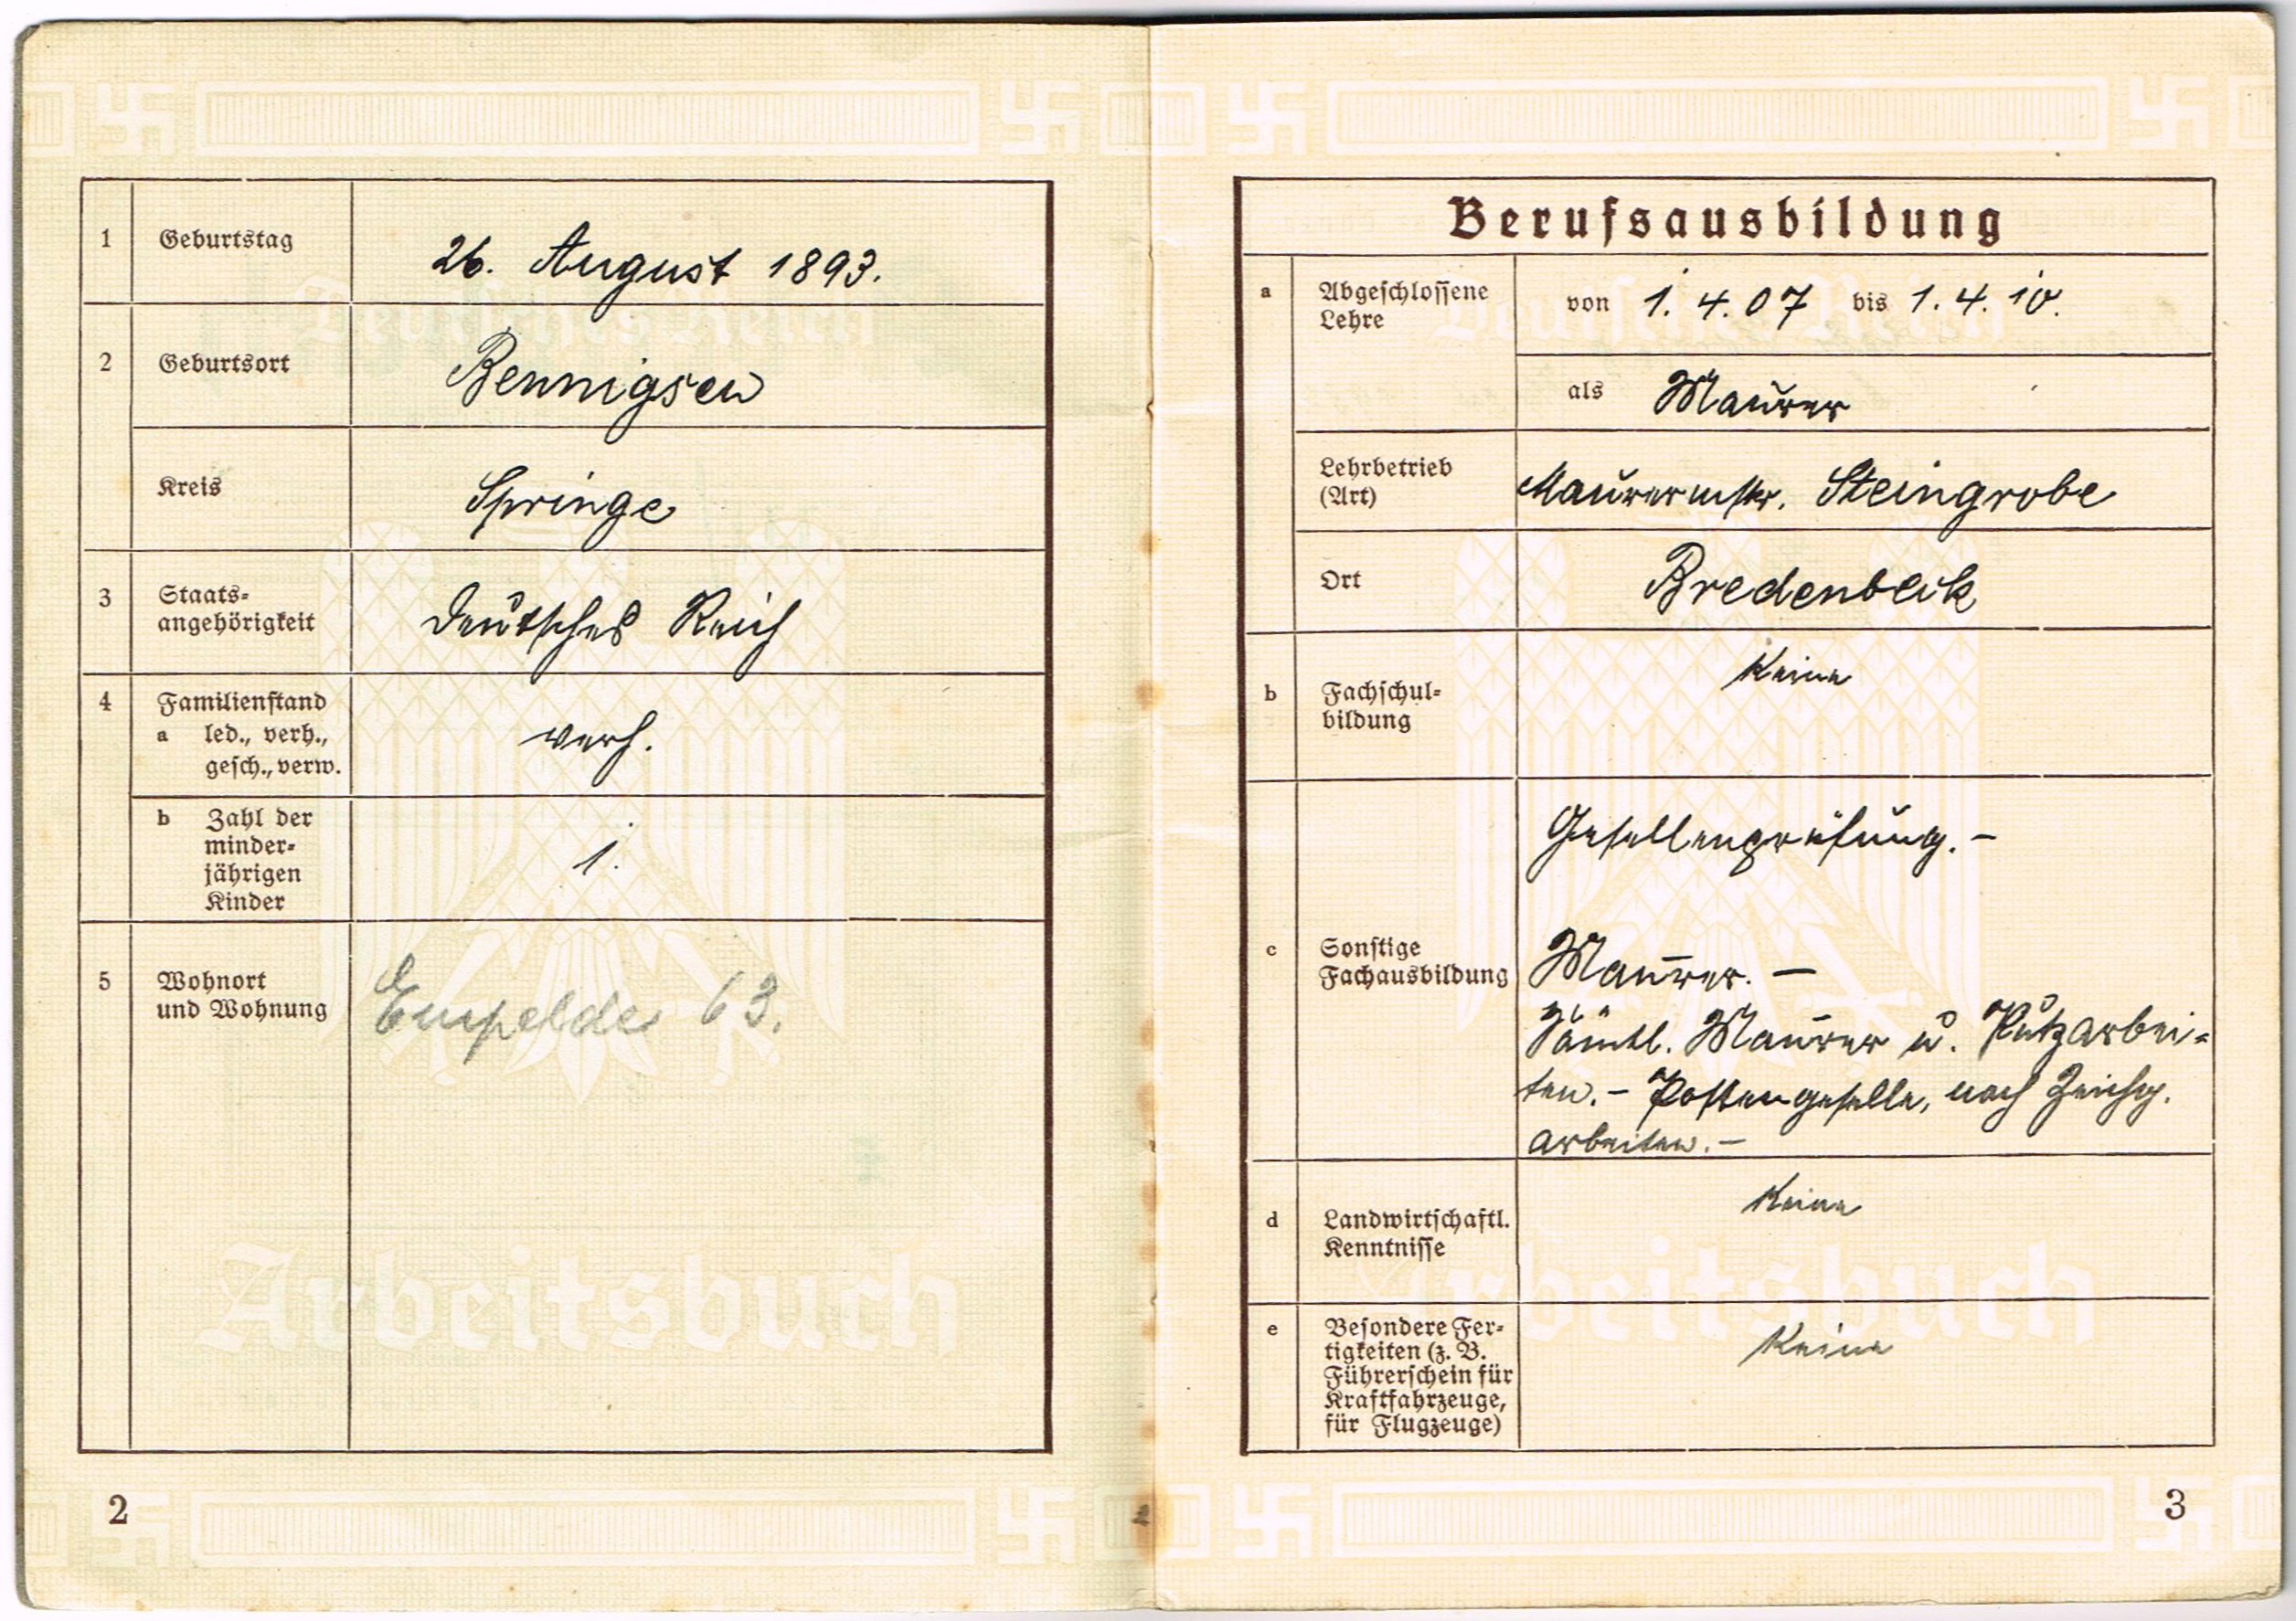 1 Geburtstag 26. August 1893.
2 Geburtsort Bennigsen
Kreis Springe
3 Staats-
angehörigkeit Deutsches Reich
4 Familienstand
a led., verh.,
gesch., verw. verh.
b Zahl der
minder-
jährigen
Kinder 1.
5 Wohnort
und Wohnung Empelde 63.
Deutsches Reich
Arbeitsbuch
2
Berufsausbildung
a Abgeschlossene
Lehre von 1.4.07 bis 1.4.10.
als Maurer
Lehrbetrieb
(Art) Maurermstr. Steingrobe
Ort Bredenbeck
b Fachschul-
bildung Keine
c Sonstige
Fachausbildung
Gesellenprüfung. –
Maurer. –
Sämtl. Maurer u. Putzarbei-
ten. – Postengeselle, nach Zeichg.
arbeiten. –
d Landwirtschaftl.
Kenntnisse Keine
e Besondere Fer-
tigkeiten (z. B.
Führerschein für
Kraftfahrzeuge,
für Flugzeuge) Keine
Deutsches Reich
Arbeitsbuch
3